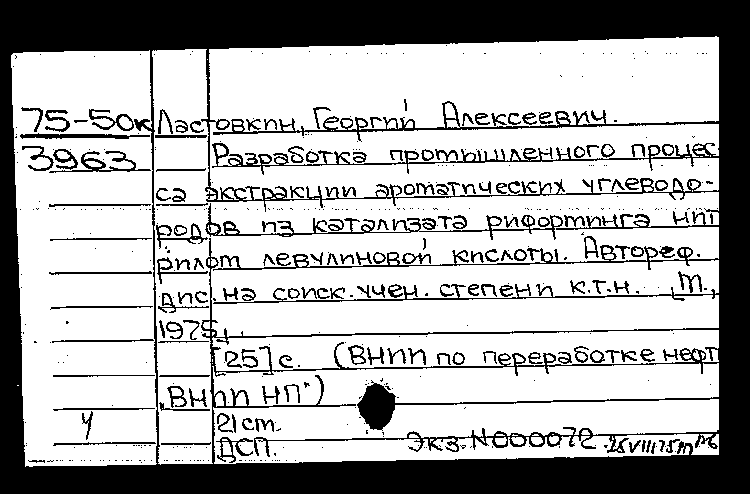 75-50к Ластовкин, Георгий Алексеевич.
3963 Разработка промышленного процес
са экстракции ароматических углеводо-
родов из катализата рифортинга нит
рилом левулиновой кислоты. Автореф.
дис. на соиск. учен. степени к.т.н. М.,
1975г.
[25] с. (ВНИИ по переработке нефт
"ВНИИ НП")
21 cm.
ч ДСП. Экз. N000072 25VIII75